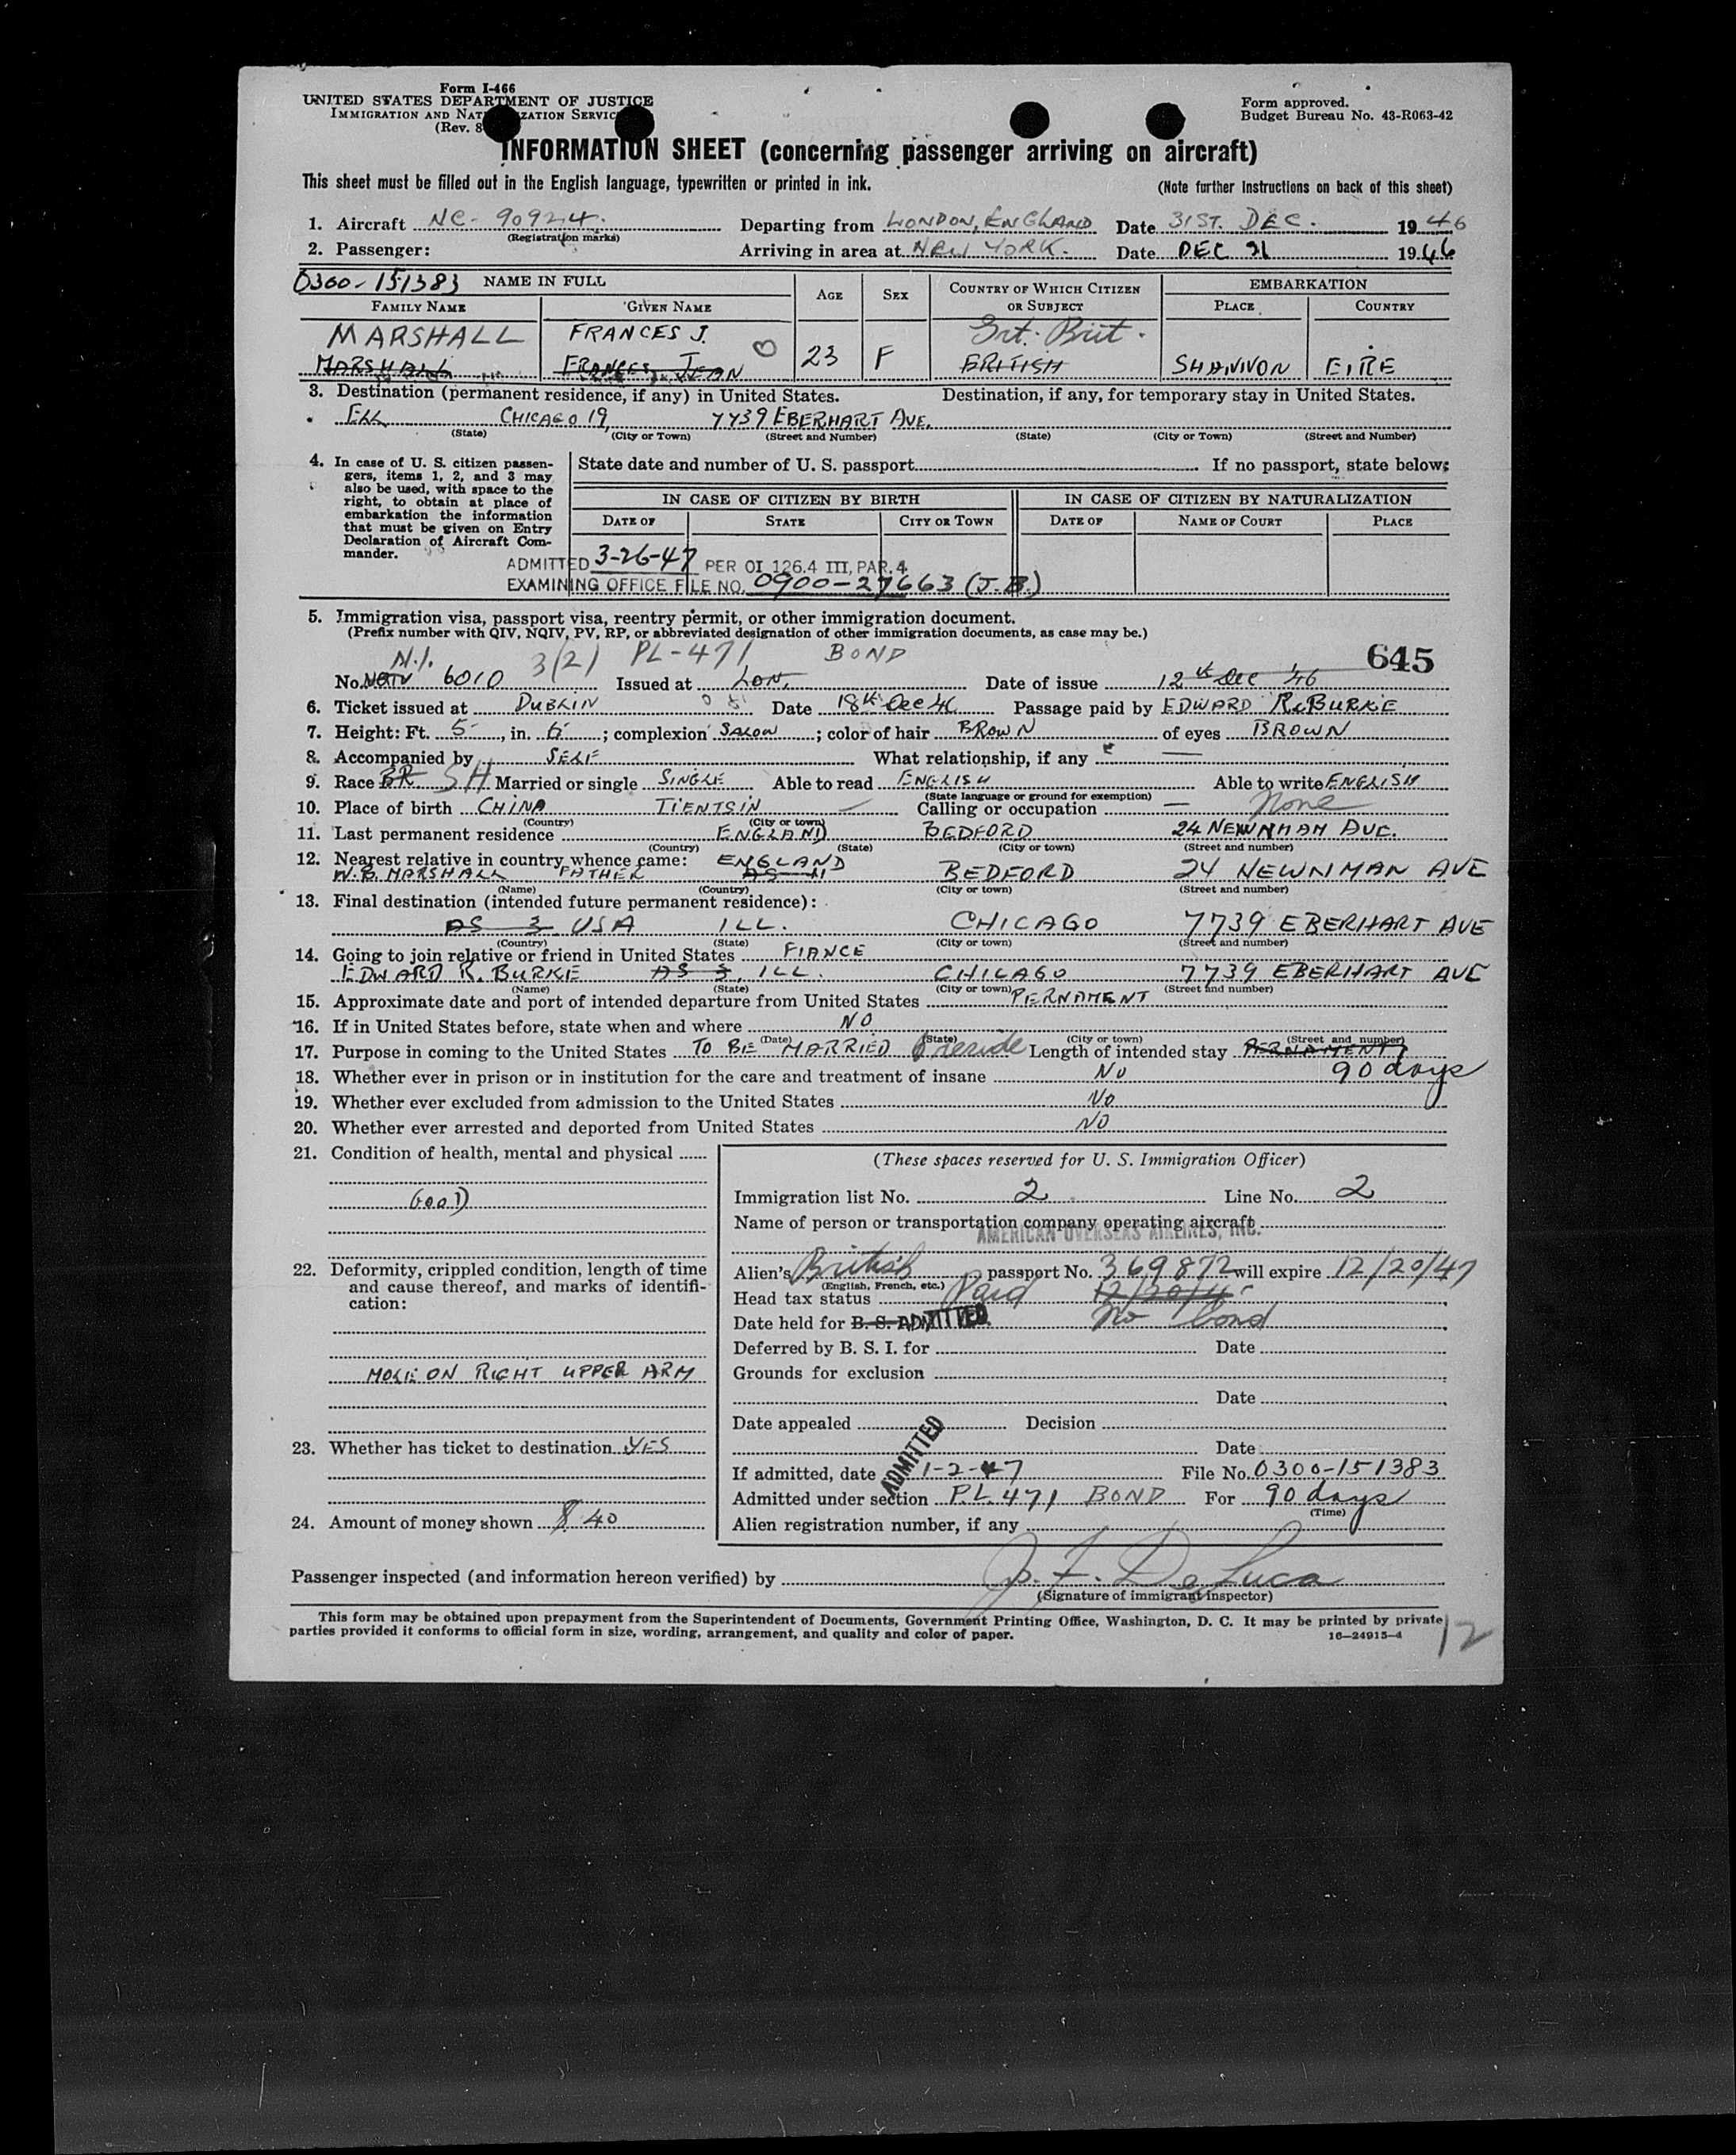 Form I-466
UNITED STATES DEPARTMENT OF JUSTICE
IMMIGRATION AND NATURALIZATION SERVICE
(Rev. 8
Form approved.
Budget Bureau No. 43-R063-42
INFORMATION SHEET (concerning passenger arriving on aircraft)
This sheet must be filled out in the English language, typewritten or printed in ink. (Note further instructions on back of this sheet)
1. Aircraft NC-90924. Departing from LONDON, ENGLAND Date 31ST. DEC. 1946
(Registration marks)
2. Passenger: Arriving in area at NEW YORK. Date DEC 31 1946
0300-151383 NAME IN FULL AGE SEX COUNTRY OF WHICH CITIZEN OR SUBJECT EMBARKATION
FAMILY NAME GIVEN NAME PLACE COUNTRY
MARSHALL FRANCES J. Grt. Brit.
MARSHALL FRANCES JEAN 23 F BRITISH SHANNON EIRE
3. Destination (permanent residence, if any) in United States. Destination, if any, for temporary stay in United States.
ILL CHICAGO 19, 7739 EBERHART AVE.
(State) (City or Town) (Street and Number) (State) (City or Town) (Street and Number)
4. In case of U. S. citizen passengers, items 1, 2, and 3 may also be used, with space to the right, to obtain at place of embarkation the information that must be given on Entry Declaration of Aircraft Commander.
State date and number of U. S. passport If no passport, state below:
IN CASE OF CITIZEN BY BIRTH IN CASE OF CITIZEN BY NATURALIZATION
DATE OF STATE CITY OR TOWN DATE OF NAME OF COURT PLACE
ADMITTED 3-26-47 PER OI 126.4 III, PAR. 4
EXAMINING OFFICE FILE NO. 0900-27663 (J.B.)
5. Immigration visa, passport visa, reentry permit, or other immigration document.
(Prefix number with QIV, NQIV, PV, RP, or abbreviated designation of other immigration documents, as case may be.)
N.I. 3(2) PL-471 BOND 645
No. 6010 Issued at LON. Date of issue 12th Dec '46
6. Ticket issued at DUBLIN Date 18th Dec 46 Passage paid by EDWARD R. BURKE
7. Height: Ft. 5, in. 6; complexion SALOW; color of hair BROWN of eyes BROWN
8. Accompanied by SELF What relationship, if any —
9. Race BR SH Married or single SINGLE Able to read ENGLISH Able to write ENGLISH
(State language or ground for exemption)
10. Place of birth CHINA TIENTSIN Calling or occupation — None
(Country) (City or town)
11. Last permanent residence ENGLAND BEDFORD 24 NEWNHAM AVE.
(Country) (State) (City or town) (Street and number)
12. Nearest relative in country whence came: ENGLAND
W.B. MARSHALL FATHER AS 11 BEDFORD 24 NEWNMAN AVE
(Name) (Country) (City or town) (Street and number)
13. Final destination (intended future permanent residence):
AS 3 USA ILL. CHICAGO 7739 EBERHART AVE
(Country) (State) (City or town) (Street and number)
14. Going to join relative or friend in United States FIANCE
EDWARD R. BURKE AS 3, ILL. CHICAGO 7739 EBERHART AVE
(Name) (State) (City or town) (Street and number)
15. Approximate date and port of intended departure from United States PERNAMENT
16. If in United States before, state when and where NO
(Date) (State) (City or town) (Street and number)
17. Purpose in coming to the United States TO BE MARRIED & reside Length of intended stay PERNAMENT
90 days
18. Whether ever in prison or in institution for the care and treatment of insane NO
19. Whether ever excluded from admission to the United States NO
20. Whether ever arrested and deported from United States NO
21. Condition of health, mental and physical
GOOD
22. Deformity, crippled condition, length of time and cause thereof, and marks of identification:
MOLE ON RIGHT UPPER ARM
23. Whether has ticket to destination YES
24. Amount of money shown $ 40
(These spaces reserved for U. S. Immigration Officer)
Immigration list No. 2 Line No. 2
Name of person or transportation company operating aircraft
AMERICAN OVERSEAS AIRLINES, INC.
Alien's British passport No. 369872 will expire 12/20/47
(English, French, etc.)
Head tax status Paid 12/20/4
Date held for B. S. ADMITTED No bond
Deferred by B. S. I. for Date
Grounds for exclusion
Date
Date appealed Decision
Date
ADMITTED
If admitted, date 1-2-47 File No. 0300-151383
Admitted under section P.L. 471 BOND For 90 days
(Time)
Alien registration number, if any
Passenger inspected (and information hereon verified) by J. F. De Luca
(Signature of immigrant inspector)
This form may be obtained upon prepayment from the Superintendent of Documents, Government Printing Office, Washington, D. C. It may be printed by private
parties provided it conforms to official form in size, wording, arrangement, and quality and color of paper. 16—24915-4
12